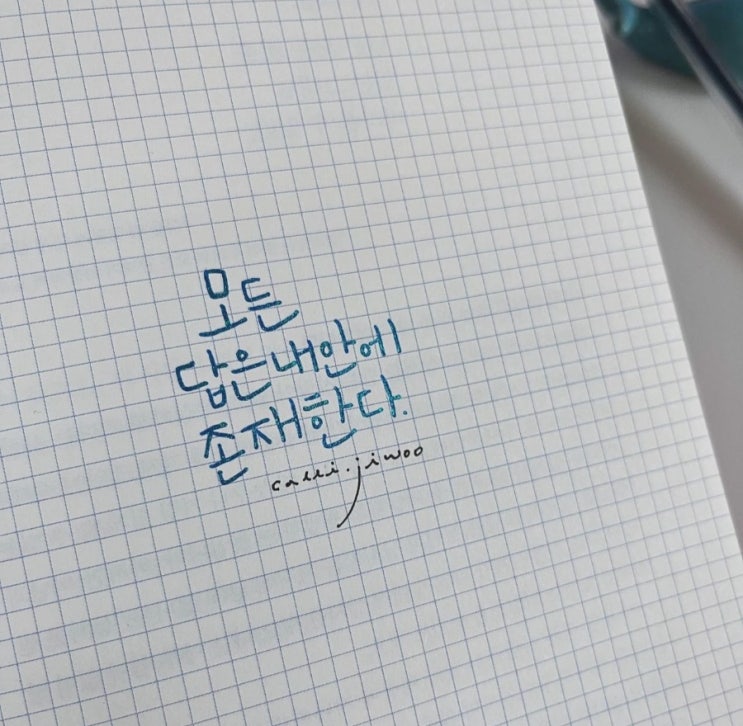 모든
답은 내 안에
존재한다.
calli.jiwoo